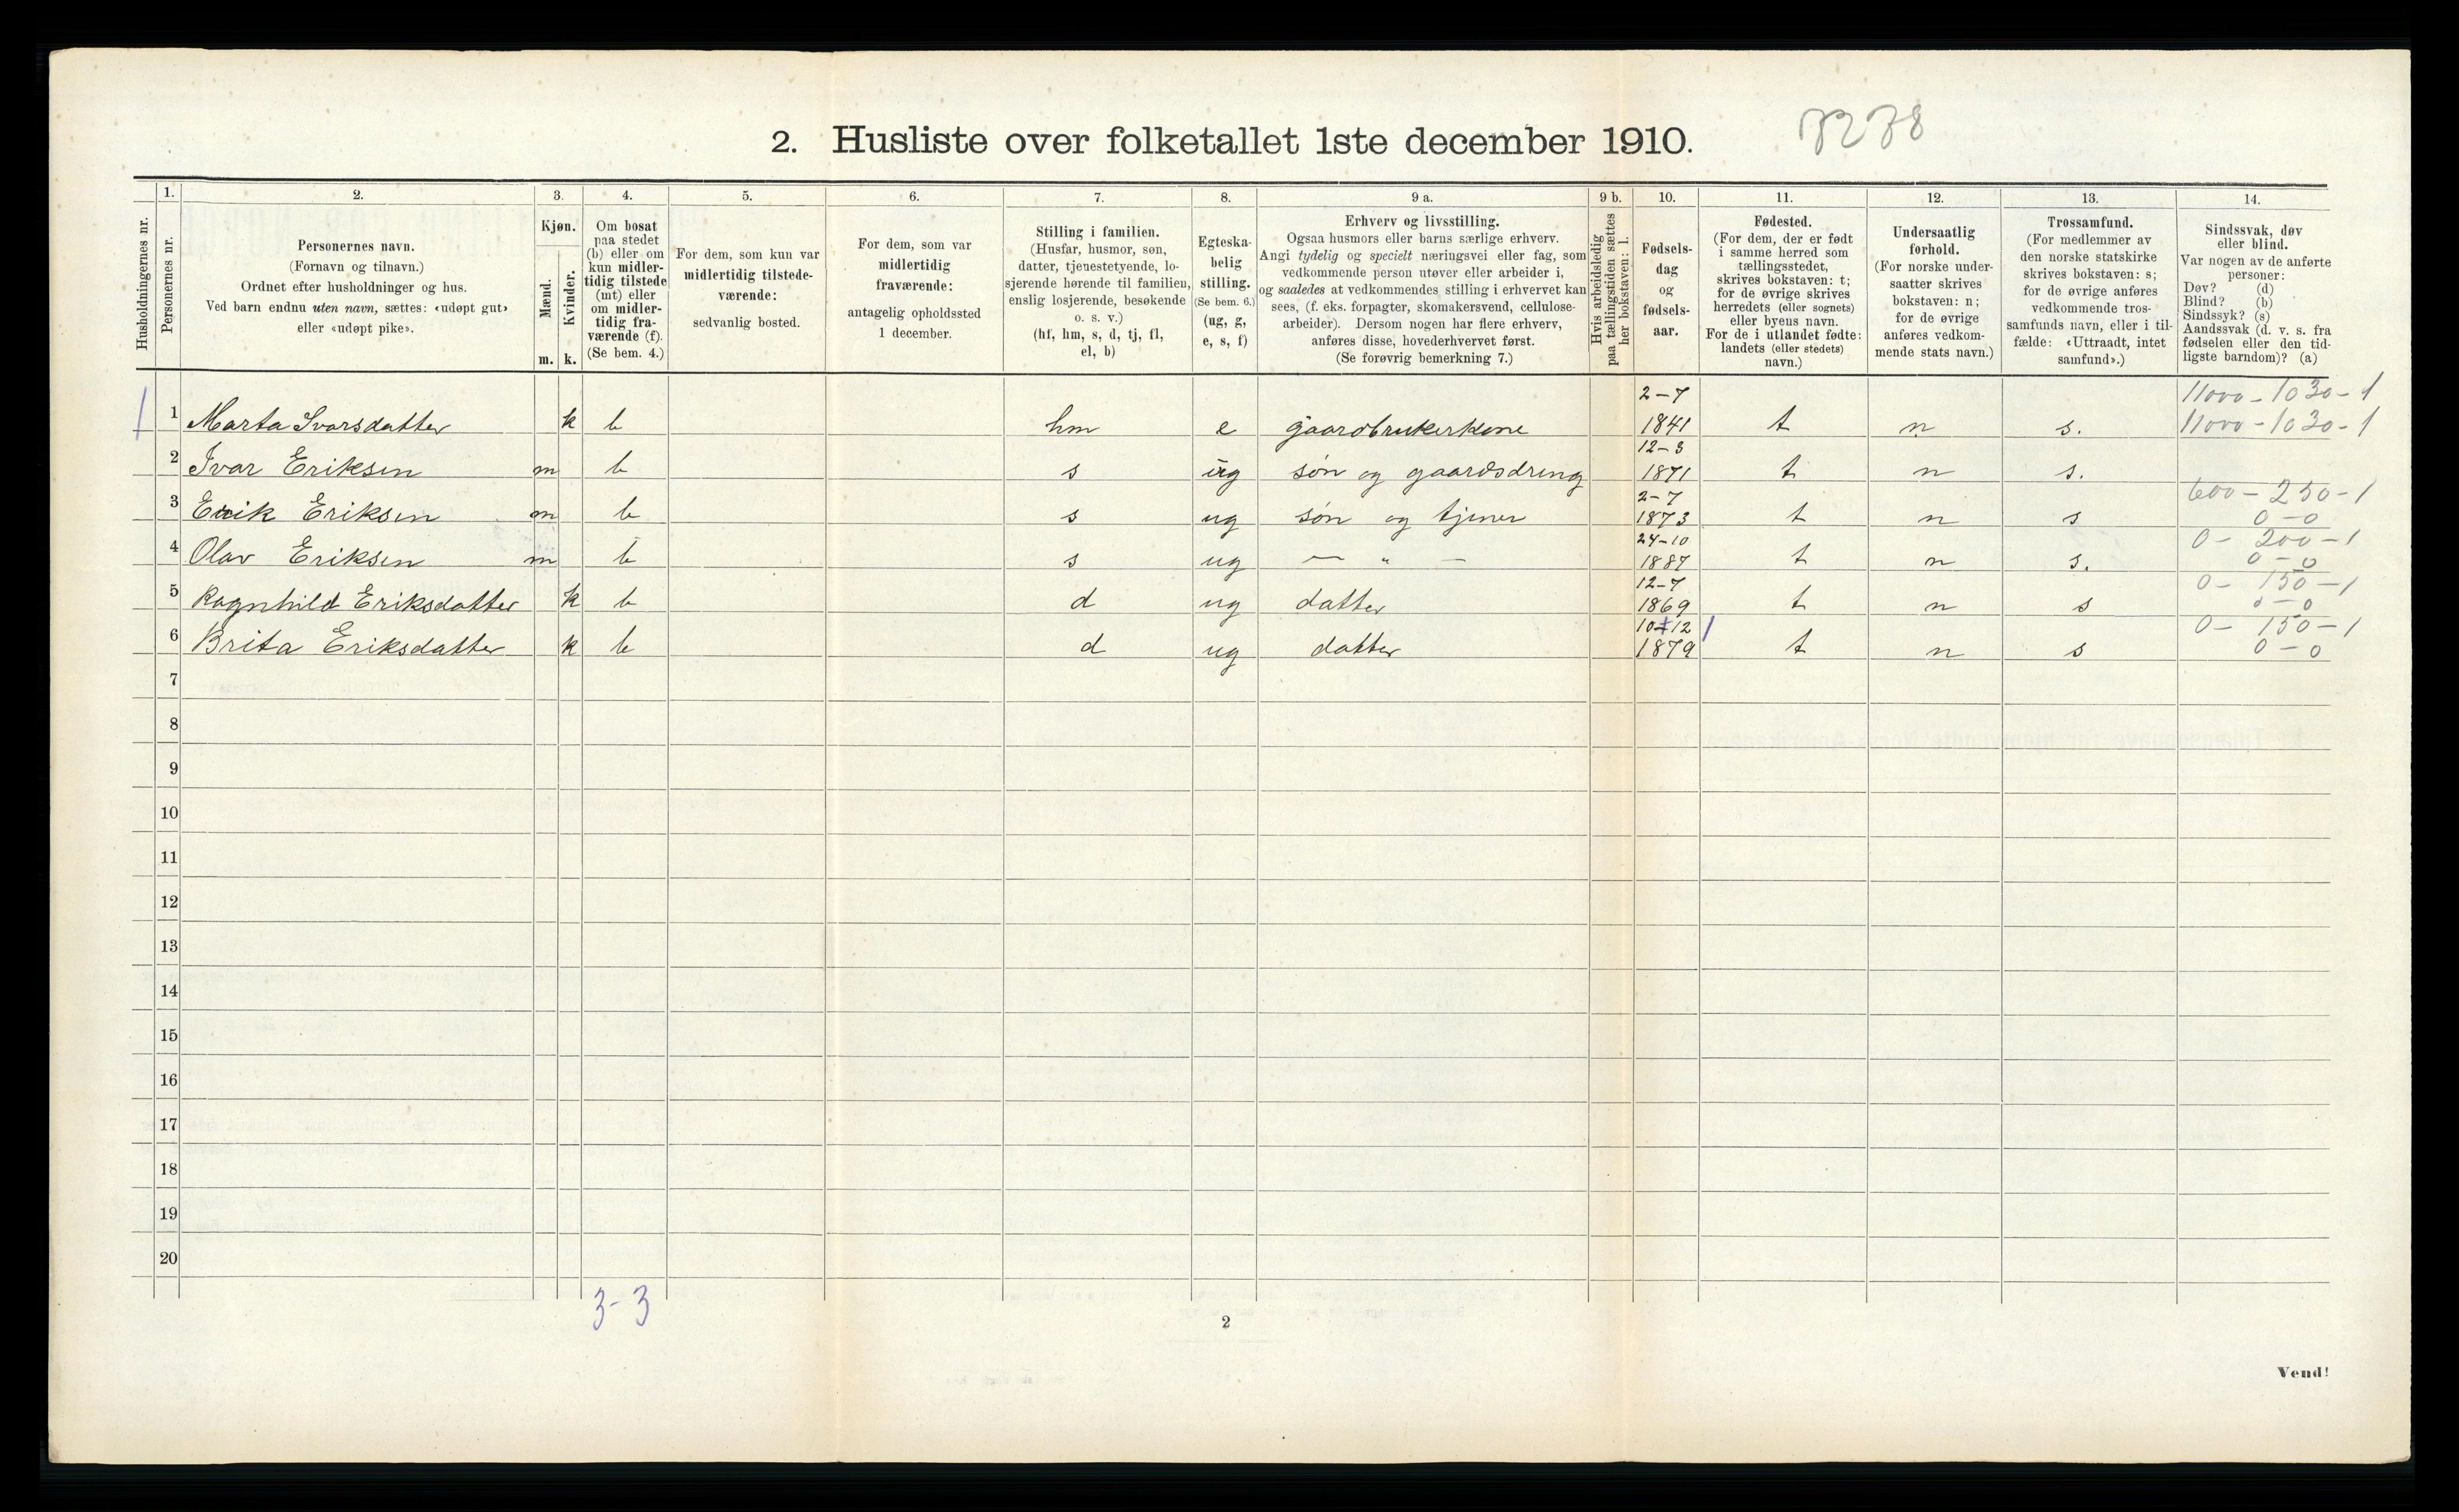 2. Husliste over folketallet 1ste december 1910.
1. 2. 3. 4. 5. 6. 7. 8. 9 a. 9 b. 10. 11. 12. 13. 14.
Husholdningernes nr.
Personernes nr.
Personernes navn.
(Fornavn og tilnavn.)
Ordnet efter husholdninger og hus.
Ved barn endnu uten navn, sættes: «udøpt gut»
eller «udøpt pike».
Kjøn.
Mænd.
Kvinder.
m. k.
Om bosat
paa stedet
(b) eller om
kun midler-
tidig tilstede
(mt) eller
om midler-
tidig fra-
værende (f).
(Se bem. 4.)
For dem, som kun var
midlertidig tilstede-
værende:
sedvanlig bosted.
For dem, som var
midlertidig
fraværende:
antagelig opholdssted
1 december.
Stilling i familien.
(Husfar, husmor, søn,
datter, tjenestetyende, lo-
sjerende hørende til familien,
enslig losjerende, besøkende
o. s. v.)
(hf, hm, s, d, tj, fl,
el, b)
Egteska-
belig
stilling.
(Se bem. 6.)
(ug, g,
e, s, f)
Erhverv og livsstilling.
Ogsaa husmors eller barns særlige erhverv.
Angi tydelig og specielt næringsvei eller fag, som
vedkommende person utøver eller arbeider i,
og saaledes at vedkommendes stilling i erhvervet kan
sees, (f. eks. forpagter, skomakersvend, cellulose-
arbeider). Dersom nogen har flere erhverv,
anføres disse, hovederhvervet først.
(Se forøvrig bemerkning 7.)
Hvis arbeidsledig
paa tællingstiden sættes
her bokstaven: l.
Fødsels-
dag
og
fødsels-
aar.
Fødested.
(For dem, der er født
i samme herred som
tællingsstedet,
skrives bokstaven: t;
for de øvrige skrives
herredets (eller sognets)
eller byens navn.
For de i utlandet fødte:
landets (eller stedets)
navn.)
Undersaatlig
forhold.
(For norske under-
saatter skrives
bokstaven: n;
for de øvrige
anføres vedkom-
mende stats navn.)
Trossamfund.
(For medlemmer av
den norske statskirke
skrives bokstaven: s;
for de øvrige anføres
vedkommende tros-
samfunds navn, eller i til-
fælde: «Uttraadt, intet
samfund».)
Sindssvak, døv
eller blind.
Var nogen av de anførte
personer:
Døv? (d)
Blind? (b)
Sindssyk? (s)
Aandssvak (d. v. s. fra
fødselen eller den tid-
ligste barndom)? (a)
2-7 11000-1030-1
1 1 Marta Ivarsdatter k b hm e gaardbrukerkone 1841 t n s. 11000-1030-1
12-3
2 Ivar Eriksen m b s ug søn og gaardsdreng 1871 t n s.
2-7 600-250-1
3 Erik Eriksen m b s ug søn og tjener 1873 t n s 0-0
24-10 0-200-1
4 Olav Eriksen m b s ug — " — 1887 t n s. 0-0
12-7 0-150-1
5 Ragnhild Eriksdatter k b d ug datter 1869 t n s 0-0
10-12 0-150-1
6 Brita Eriksdatter k b d ug datter 1879 t n s 0-0
7
8
9
10
11
12
13
14
15
16
17
18
19
20
3-3
2
Vend!